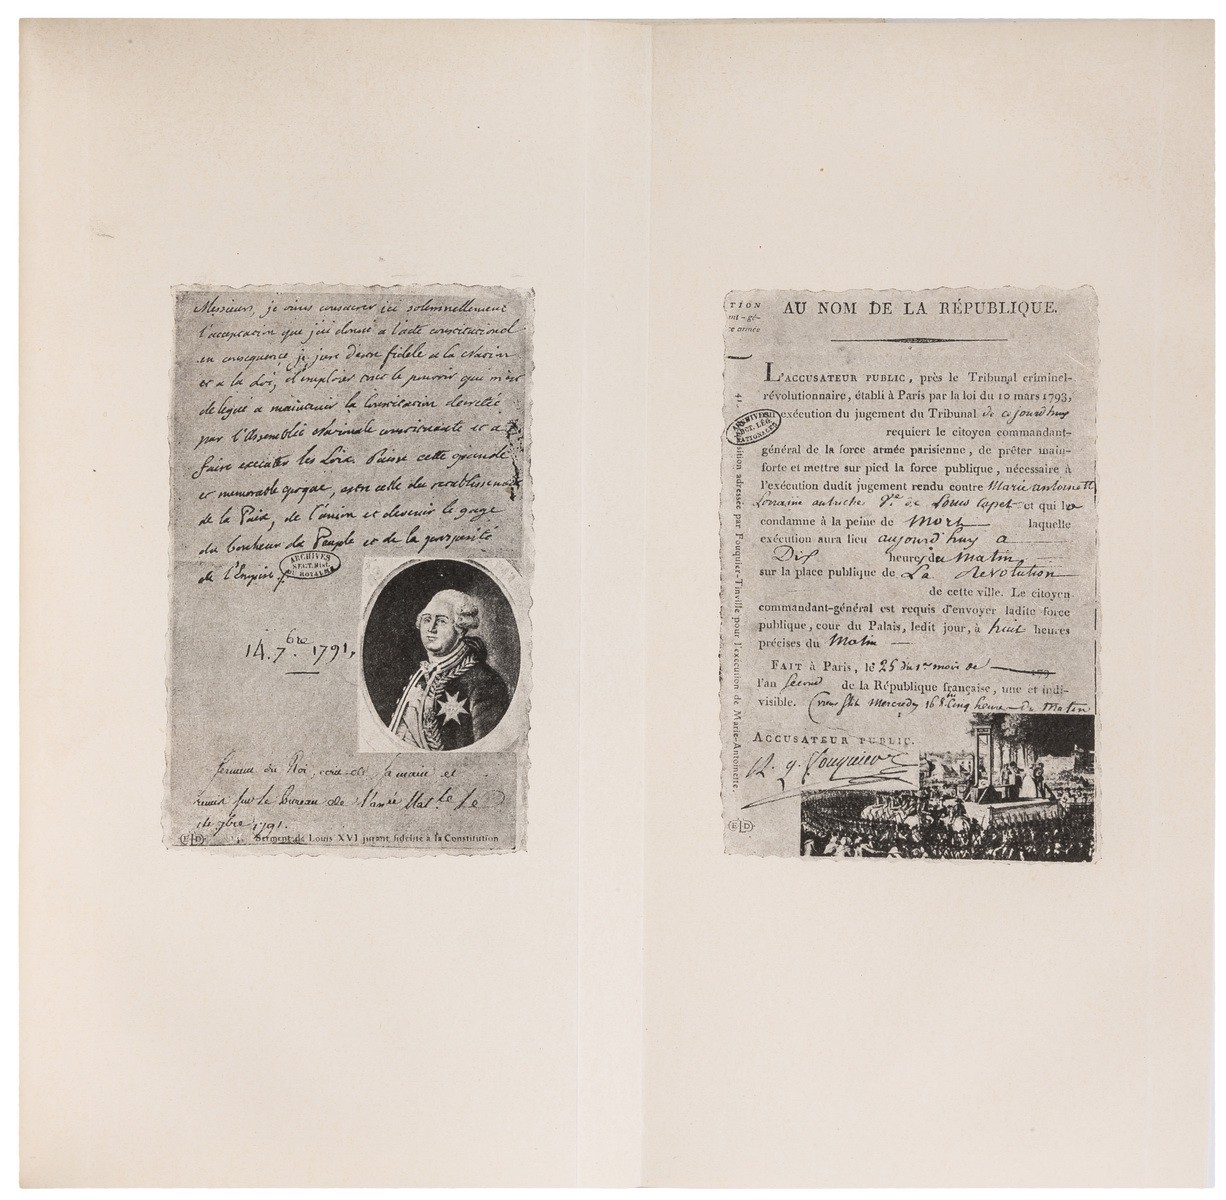 Messieurs, je viens consacrer ici solemnellement
l'acceptation que j'ai donné a l'acte constitutionel
en consequence je jure d'etre fidele a la Nation
et a la Loi, d'emploier tout le pouvoir qui m'est
delegué a maintenir la Constitution decretée
par l'Assemblée Nationale constituante et a
faire executer les Loix. Puisse cette grande
et memorable epoque, etre celle du retablissement
de la Paix, de l'union et devenir le gage
du bonheur du Peuple et de la prosperité
de l'Empire
ARCHIVES
SECT. HIST.
DU ROYAUME
14. 7bre. 1791,
Serment du Roi, écrit de sa main et
remis sur le Bureau de l'
14 7bre 1791.
ELD
Serment de Louis XVI jurant fidélité à la Constitution
TION
nt-gé-
e armée
AU NOM DE LA RÉPUBLIQUE.
L'ACCUSATEUR PUBLIC, près le Tribunal criminel-
révolutionnaire, établi à Paris par la loi du 10 mars 1793,
exécution du jugement du Tribunal de ce jourdhuy
requiert le citoyen commandant-
général de la force armée parisienne, de prêter main-
forte et mettre sur pied la force publique, nécessaire à
l'exécution dudit jugement rendu contre Marie antoinett
Lorraine autriche Ve de Louis Capet et qui la
condamne à la peine de Mort laquelle
exécution aura lieu aujourd'huy a
Dix heures du Matin
sur la place publique de La Revolution
de cette ville. Le citoyen
commandant-général est requis d'envoyer ladite force
publique, cour du Palais, ledit jour, à huit heures
précises du Matin
FAIT à Paris, le 25 du 1er mois de 179
l'an Second de la République française, une et indi-
visible. (vieux stil Mercredy 16 8bre Cinq heure du Matin
ACCUSATEUR PUBLIC.
A. q. Fouquier
41.
ARCHIVES
SECT. LÉG.
NATIONALES
sition adressée par Fouquier-Tinville pour l'exécution de Marie-Antoinette.
ELD